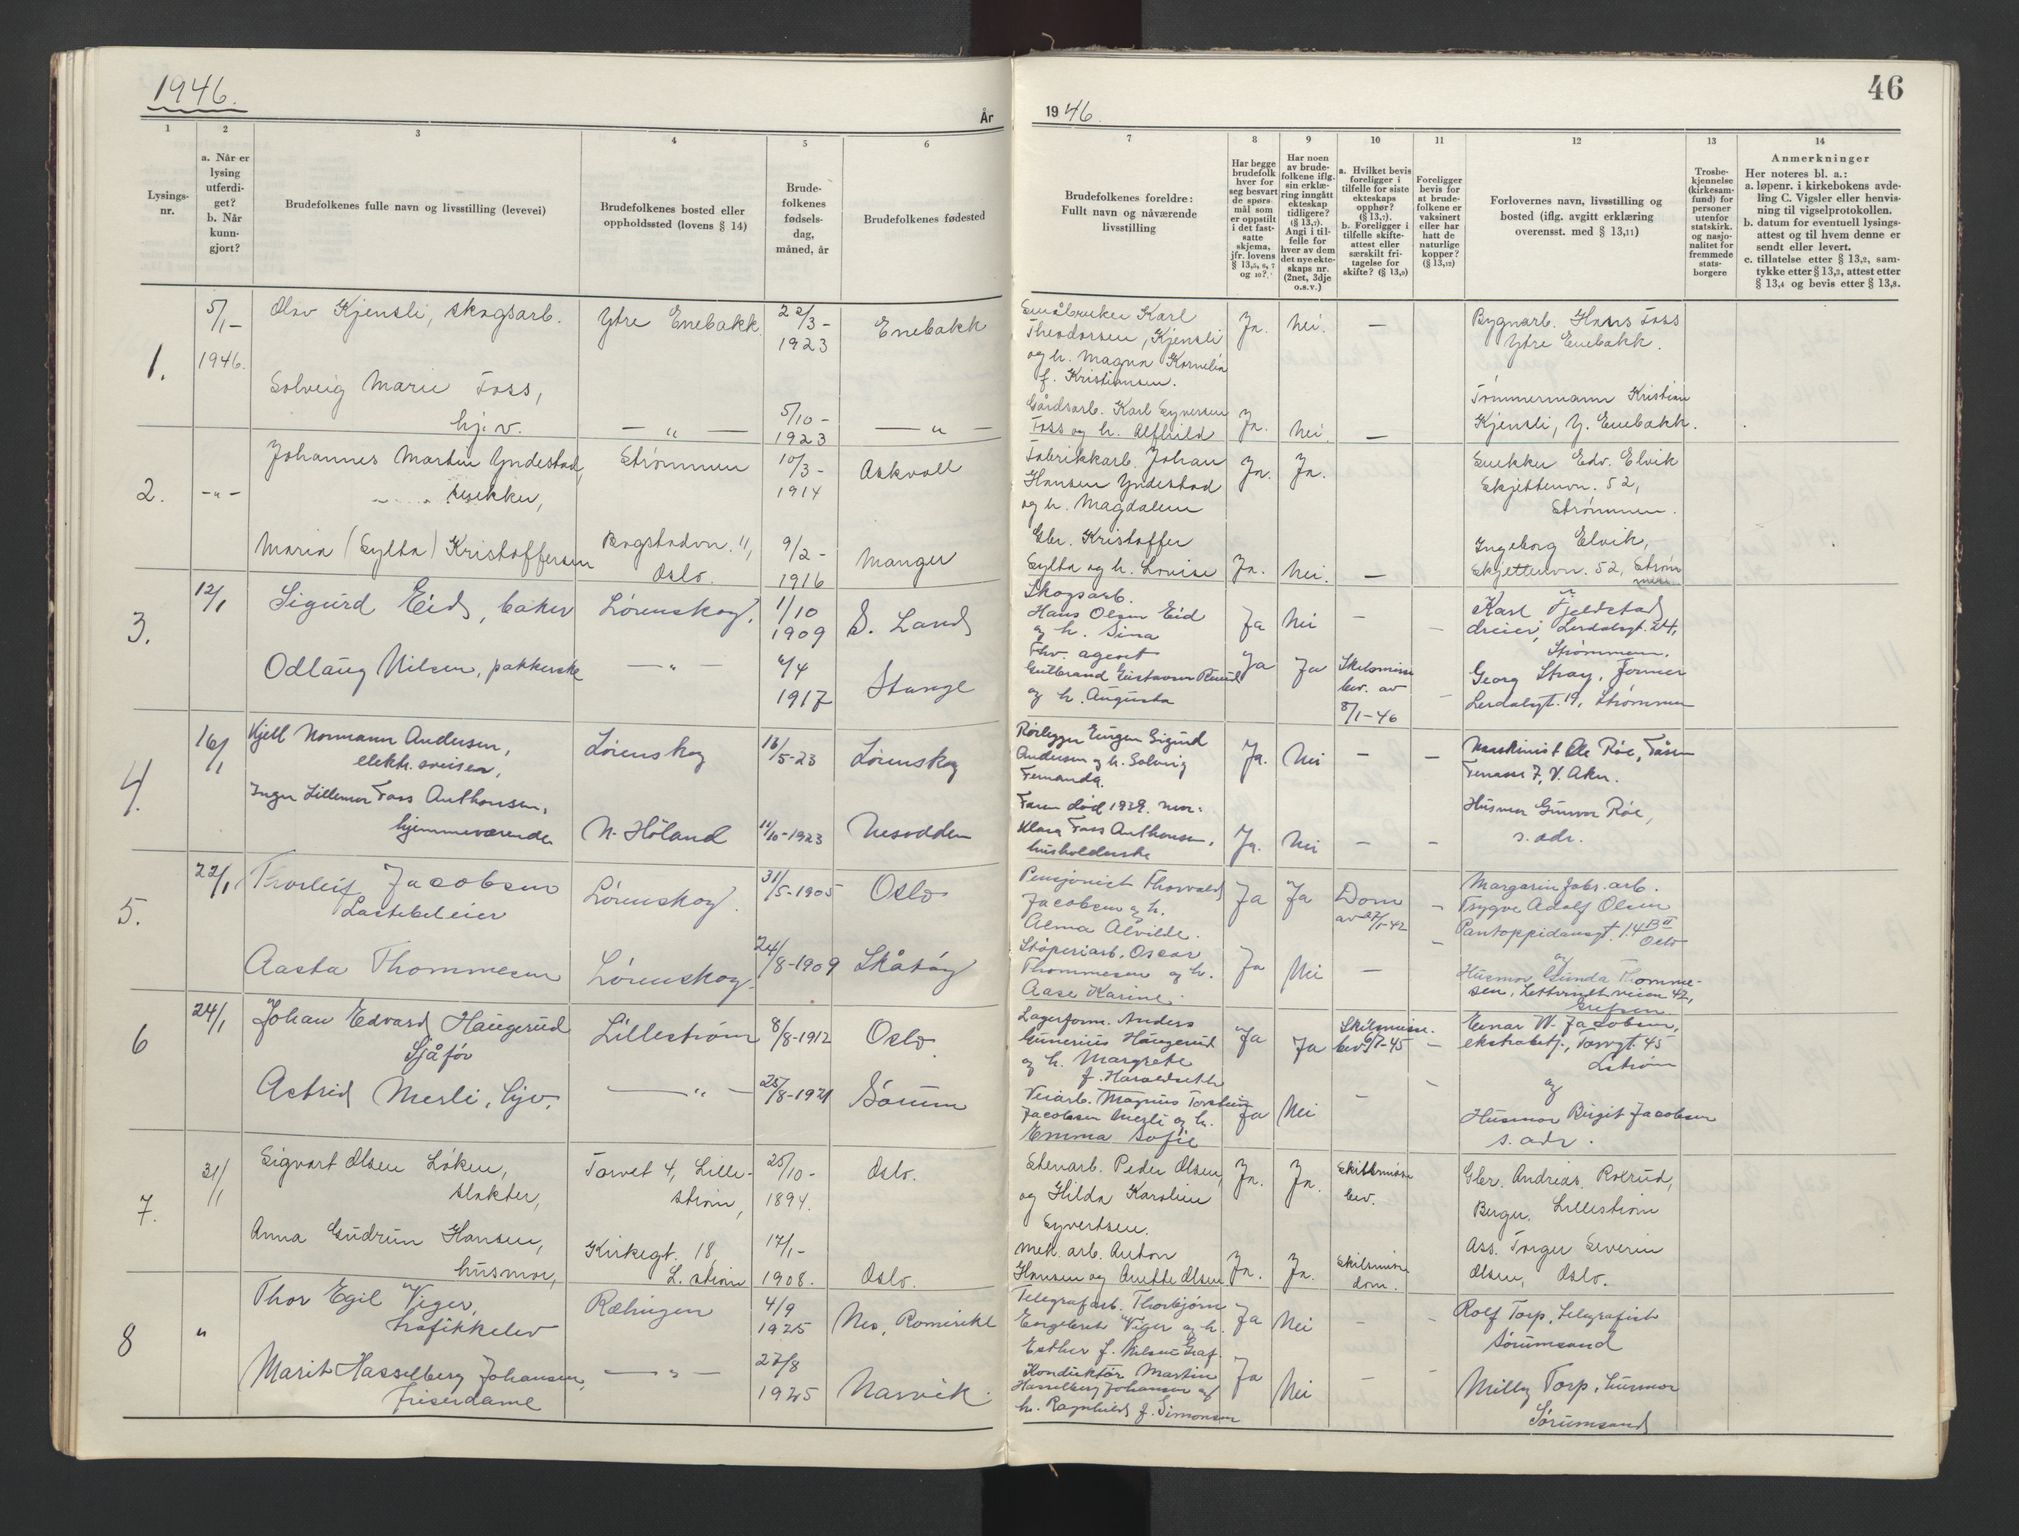 1946.
År
1
2
3
4
5
6
Lysings-
nr.
a. Når er
lysing
utferdi-
get?
b. Når
kunn-
gjort?
Brudefolkenes fulle navn og livsstilling (levevei)
Brudefolkenes bosted eller
oppholdssted (lovens § 14)
Brude-
folkenes
fødsels-
dag,
måned, år
Brudefolkenes fødested
1.
5/1 –
1946.
Olav Kjensli, skogsarb.
Ytre Enebakk
22/3 –
1923
Enebakk
Solveig Marie Foss,
hj.v.
— „ —
5/10 –
1923
— „ —
2.
– „ –
Johannes Martin Yndestad,
snekker,
Strømmen
10/3 –
1914
Askvoll
Maria (Sylta) Kristoffersen
Bogstadvn. 11,
Oslo.
9/2 –
1916
Manger
3.
12/1
Sigurd Eid, baker
Lørenskog.
1/10
1909
S. Land
Odlaug Nilsen, pakkerske
— „ —
4/4
1917
Stange
4.
16/1
Kjell Normann Andersen,
elektr. sveiser,
Lørenskog
13/5-23
Lørenskog
Inger Lillemor Foss Anthonsen,
hjemmeværende
N. Høland
11/10-1923
Nesodden
5.
22/1
Thorleif Jacobsen
Lastebileier
Lørenskog.
31/5-1905
Oslo
Aasta Thommesen
Lørenskog.
24/8-1909
Skåtøy
6
24/1
Johan Edvard Haugerud
Sjåfør
Lillestrøm
8/8-1912
Oslo.
Astrid Mesli, hjv.
— „ —
25/8-1921
Sørum
7.
31/1
Sigvart Olsen Løken,
slakter,
Torvet 4, Lille-
strøm,
25/10 –
1894.
Oslo.
Anna Gudrun Hansen,
husmor,
Kirkegt. 18,
L. strøm
17/1 –
1908.
Oslo.
8
„
Thor Egil Viger,
trafikkelev
Rælingen
4/9
1925
Nes, Romerike
Marit Hasselberg Johansen,
frisørdame
— „ —
27/8
1925
Narvik.
46
1946.
7
8
9
10
11
12
13
14
Brudefolkenes foreldre:
Fullt navn og nåværende
livsstilling
Har begge
brudefolk
hver for
seg besvart
de spørs-
mål som
er oppstilt
i det fast-
satte
skjema,
jfr. lovens
§ 13,5, 6, 7
og 10?
Har noen
av brude-
folkene iflg.
sin erklæ-
ring inngått
ekteskap
tidligere?
(§ 13,7).
Angi i til-
felle for
hver av dem
det nye ekte-
skaps nr.
(2net, 3dje
o.s.v.)
a. Hvilket bevis
foreligger i
tilfelle for siste
ekteskaps
opphør?
(§ 13,7).
b. Foreligger i
tilfelle skifte-
attest eller
særskilt fri-
tagelse for
skifte? (§ 13,9)
Foreligger
bevis for
at brude-
folkene er
vaksinert
eller har
hatt de
naturlige
kopper?
(§ 13,12)
Forlovernes navn, livsstilling og
bosted (iflg. avgitt erklæring
overensst. med § 13,11)
Trosbe-
kjennelse
(kirkesam-
fund) for
personer
utenfor
statskirk.
og nasjo-
nalitet for
fremmede
stats-
borgere
Anmerkninger
Her noteres bl. a.:
a. løpenr. i kirkebokens avde-
ling C. Vigsler eller henvis-
ning til vigselprotokollen.
b. datum for eventuell lysings-
attest og til hvem denne er
sendt eller levert.
c. tillatelse etter § 13,2, sam-
tykke etter § 13,3, attest etter
§ 13,4 og bevis etter § 13,8.
Småbruker Karl
Theodorsen, Kjensli
og h. Magna Kornelia
f. Kristiansen.
Ja.
Nei.
—
Bygnarb. Hans Foss
Ytre Enebakk.
Gårdsarb. Karl Syversen
Foss og h. Alfhild
Ja.
Nei.
—
Tømmermann Kristian
Kjensli, Y. Enebakk.
Fabrikkarb. Johan
Hansen Yndestad
og h. Magdalene
Ja.
Ja.
Snekker Edv. Elvik
Skjettenvn. 52,
Strømmen.
Gbr. Kristoffer
Sylta og h. Lovise
Ja.
Nei.
—
Ingeborg Elvik,
Skjettenvn. 52, Strøm
men
Skogsarb.
Hans Olsen Eid
og h. Sina
Ja
Nei
–
–
Karl Fjeldstad
dreier, Lerdalsgt. 24,
Strømmen.
Fhv. agent
Gulbrand Gustavsen
og h. Augusta
Ja
Ja
Skilsmisse
bev. av
8/1-46
–
Georg Stray, Former
Lerdalsgt. 19, Strømmen
Rørlegger Eugen Sigurd
Andersen og h. Solveig
Fernanda.
Ja.
Nei
–
–
Maskinist Ole Røe, Tåsen
Terasse 7, V. Aker.
Faren død 1939. Mor:
Klara Foss Anthonsen,
husholderske
Ja.
Nei
–
–
Husmor Gunvor Røe,
s. adr.
Pensjonist Thorvald
Jacobsen og h.
Alma Alvilde.
Ja
Ja
Dom
av 27/1-42
–
Margarinfabr. arb.
Trygve Adolf Olsen
Pantoppidansgt. 14 B II
Oslo
Støperiarb. Oscar
Thommesen og h.
Aase Karine.
Ja
Nei
–
–
og
Husmor Gunda Thomme-
sen, Lettvindtveien 42,
Grefsen
Lagerform. Anders
Gunerius Haugerud
og h. Margrete
f. Haraldseth
Ja
Ja
Skilsmisse.
bev. 6/7-45
–
Einar W. Jacobsen,
ekstrabetj., Torvgt. 45
Lstrøm
Veiarb. Magnus Torstein
Jacobsen Mesli og h.
Emma Sofie
Ja
Nei
–
–
og
Husmor Birgit Jacobsen
s. adr.
Stenarb. Peder Olsen,
og Hilda Karoline
Syvertsen.
Ja.
Ja.
Skilsmisse
bev.
Gbr. Andreas Roterud,
Berger, Lillestrøm
Mek. arb. Anton
Hansen og Anette Olsen
Ja.
Ja.
Skilsmisse
dom.
Ass. Torger Severin
Olsen, Oslo.
Telegrafarb. Thorbjørn
Engebret Viger og h.
Esther f. Nilsen Graf.
Ja
Nei
–
–
Rolf Torp, telegrafist
Sørumsand
Konduktør Martin
Hasselberg Johansen og
h. Ragnhild f. Simonsen
Ja
Nei
–
–
Milly Torp, husmor
Sørumsand